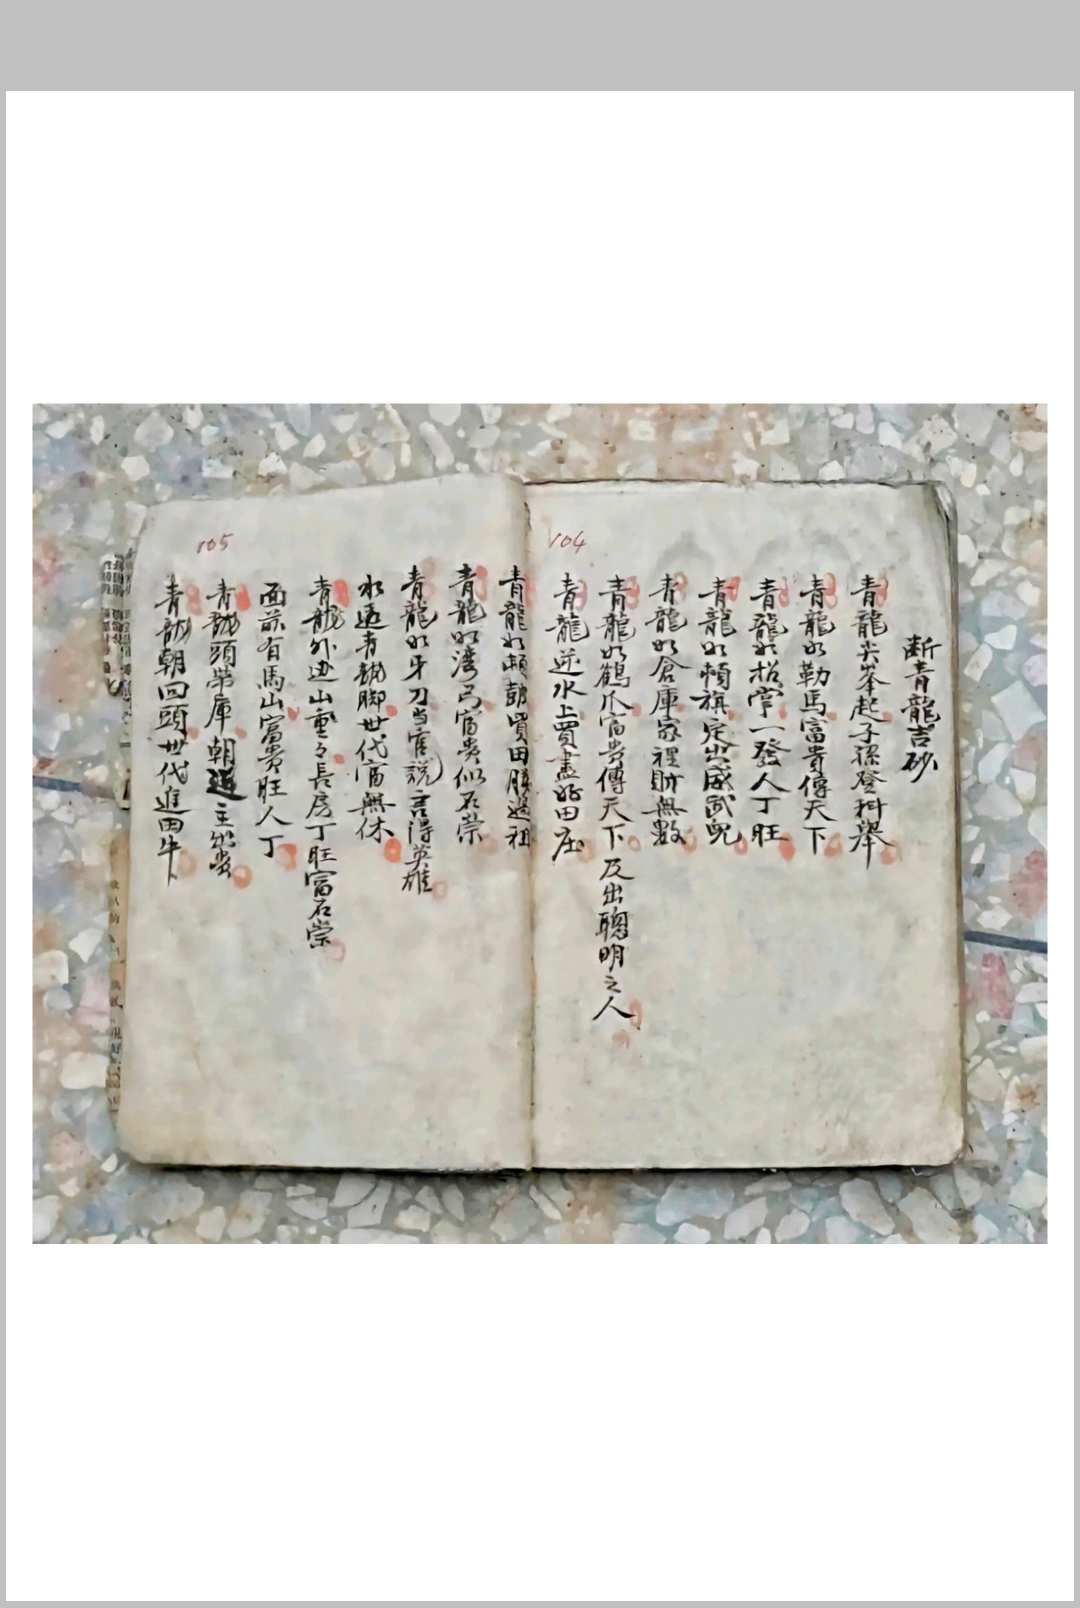 104
断青龍吉砂
青龍尖峯起子孫登科舉
青龍如勒馬富貴傳天下
青龍如招掌一發人丁旺
青龍如頓旗定出威武兒
青龍如倉庫家裡財無數
青龍如鶴爪富貴傳天下及出聰明之人
青龍逆水上買盡好田庄
105
青龍如頓鼓買田勝過祖
青龍如湾弓富貴似石崇
青龍如牙刀当官說言得英雄
水遶青龍脚世代富無休
青龍外边山重々長房丁旺富石崇
面前有馬山富貴旺人丁
青龍頭帶庫朝 主出貴
青龍朝回頭世代進田牛